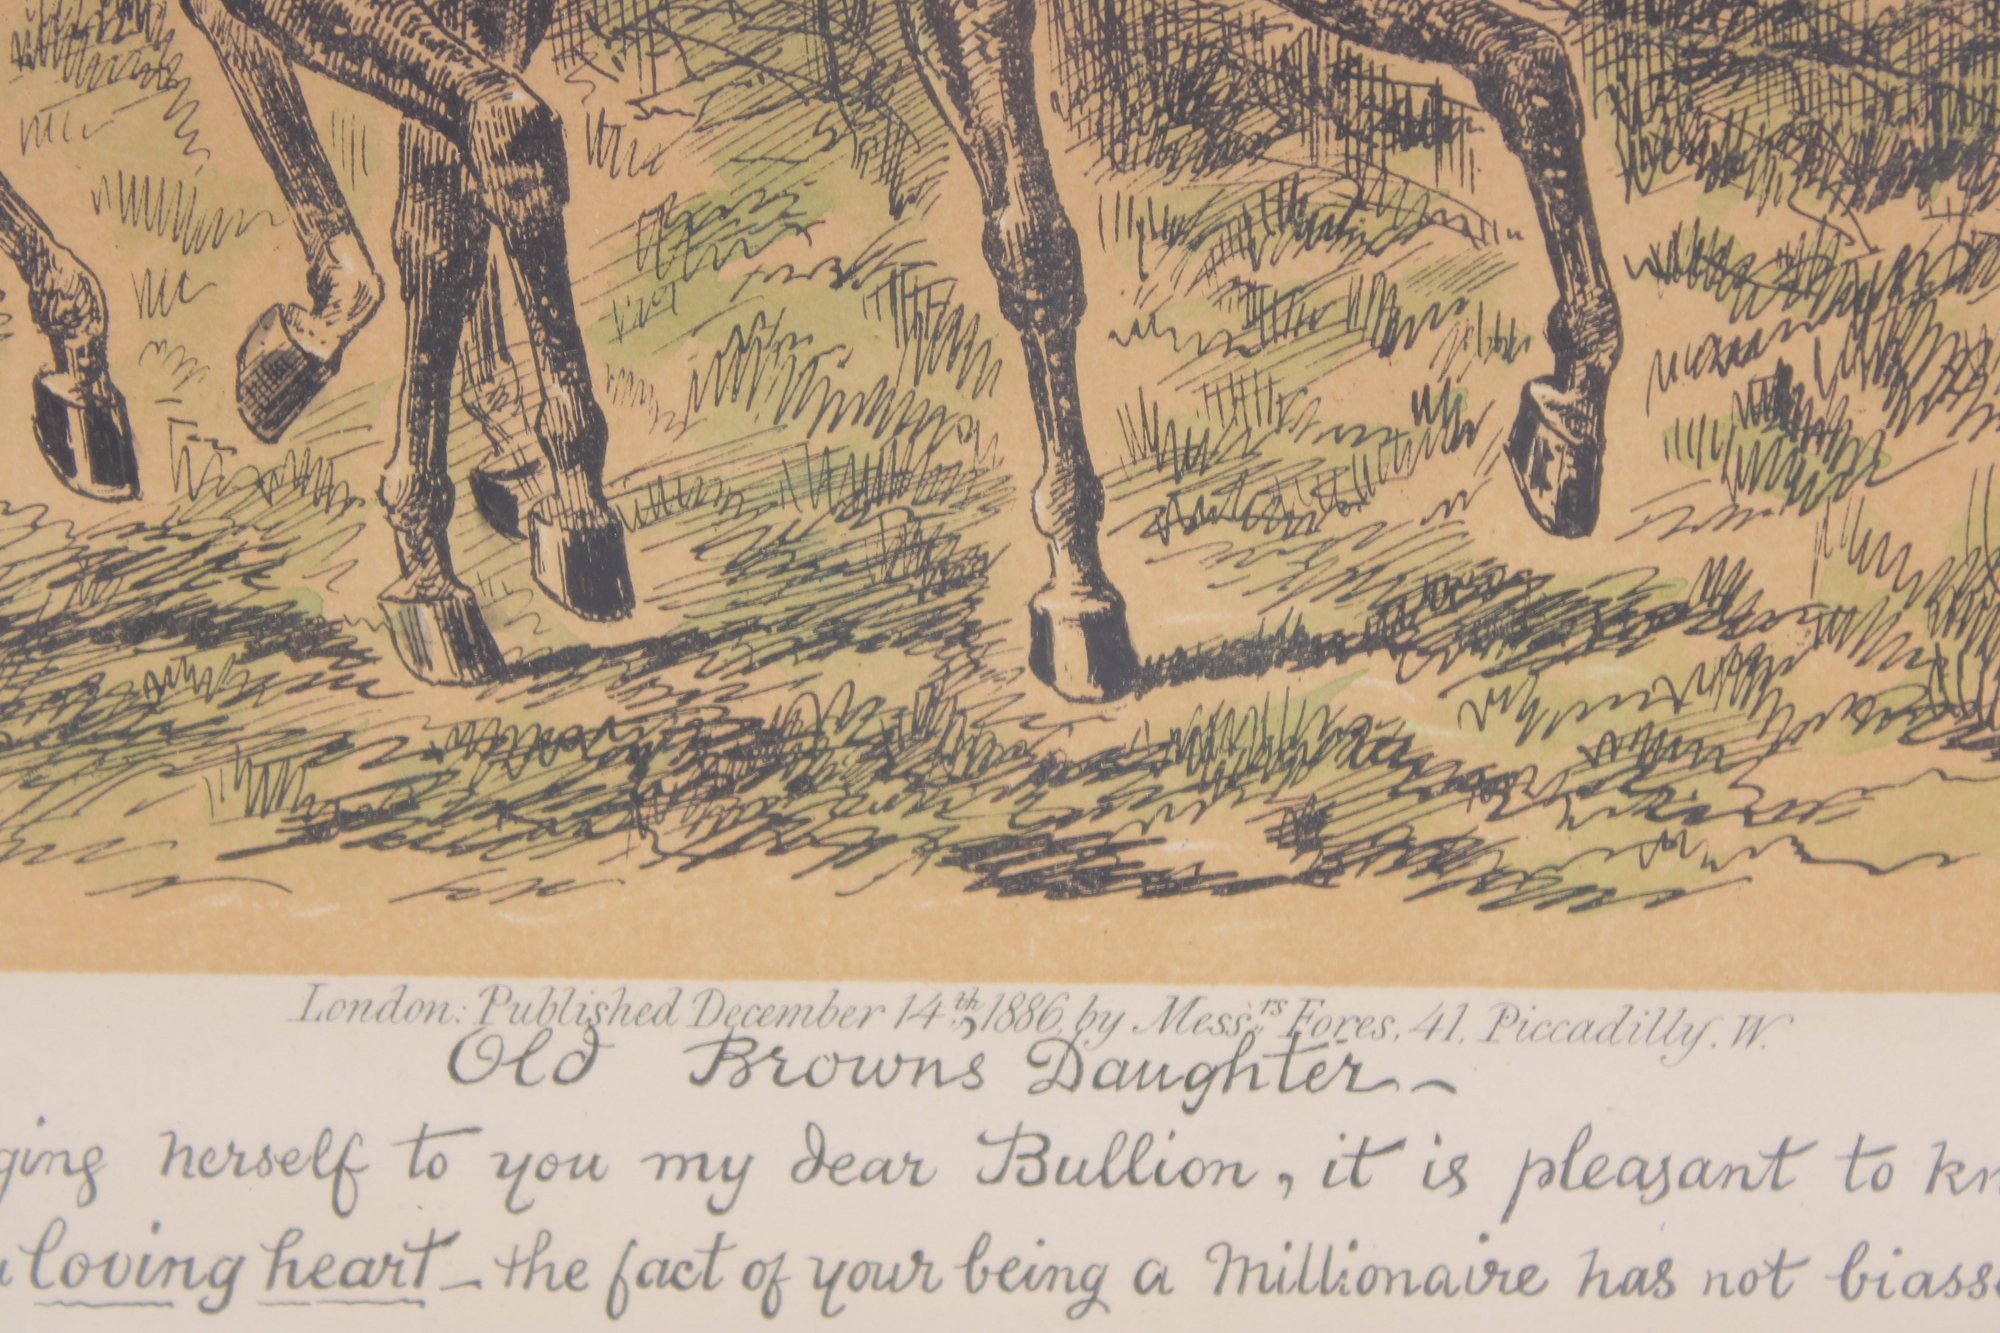 London: Published December 14th, 1886, by Messrs Fores, 41, Piccadilly. W.
Old Browns Daughter –
herself to you my dear Bullion, it is pleasant to
loving heart – the fact of your being a Millionaire has not